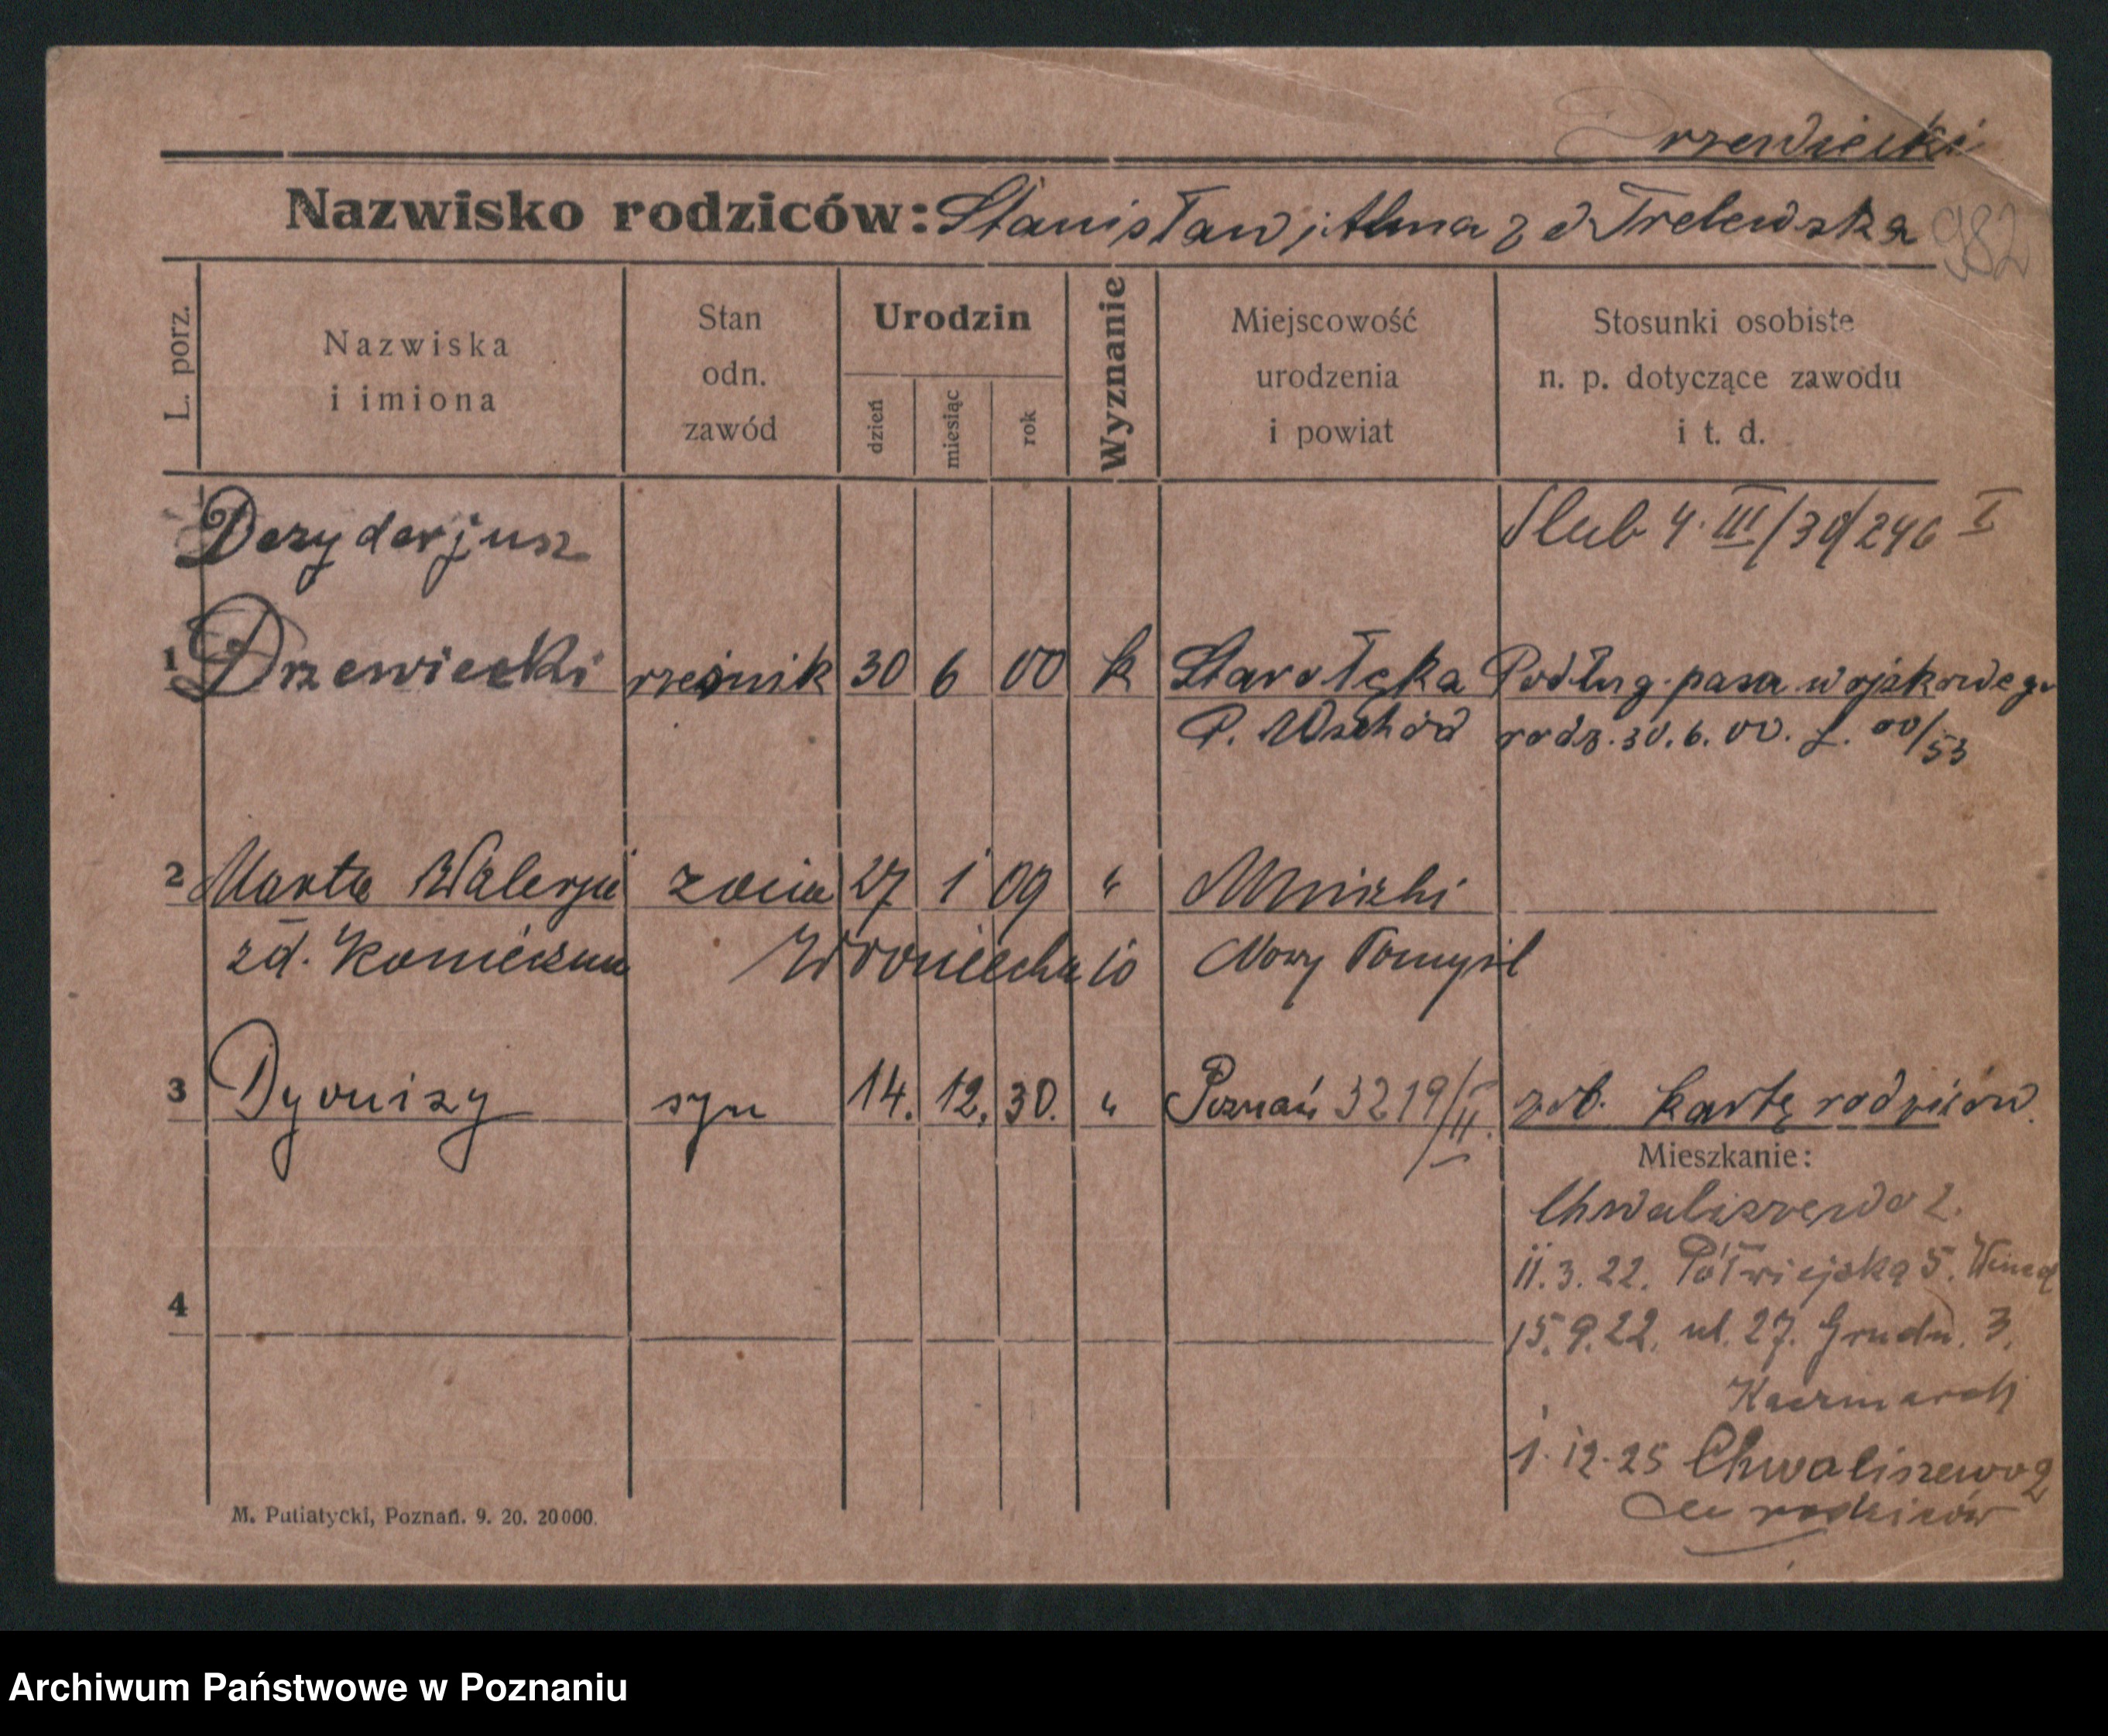 Drzewiecki
Nazwisko rodziców: Stanisław i Alma z d Trelewska
982
L. porz.
Nazwiska i imiona
Stan odn. zawód
Urodzin
dzień
miesiąc
rok
Wyznanie
Miejscowość urodzenia i powiat
Stosunki osobiste n. p. dotyczące zawodu i t. d.
Dezyderjusz
Slub 4. III/30/246 I
1 Drzewiecki rzeźnik 30 6 00 k Starołęka Podług pasa wojskowego
P. Wschód rodz. 30.6.00. f. 00/53
2 Marta Walerja żona 27 1 09 " Mnichi
zd. Konieczna Nowy Tomyśl
3 Dyonizy syn 14. 12. 30. " Poznań 3219/II. zob. kartę rodziców.
Mieszkanie:
Chwaliszewo 2.
11.3.22. Półwiejska 5.
4
15.9.22. ul. 27. Grudn. 3.
Kaczmarek
1.12.25 Chwaliszewo 2
rodziców
M. Putiatycki, Poznań. 9. 20. 20000.
Archiwum Państwowe w Poznaniu